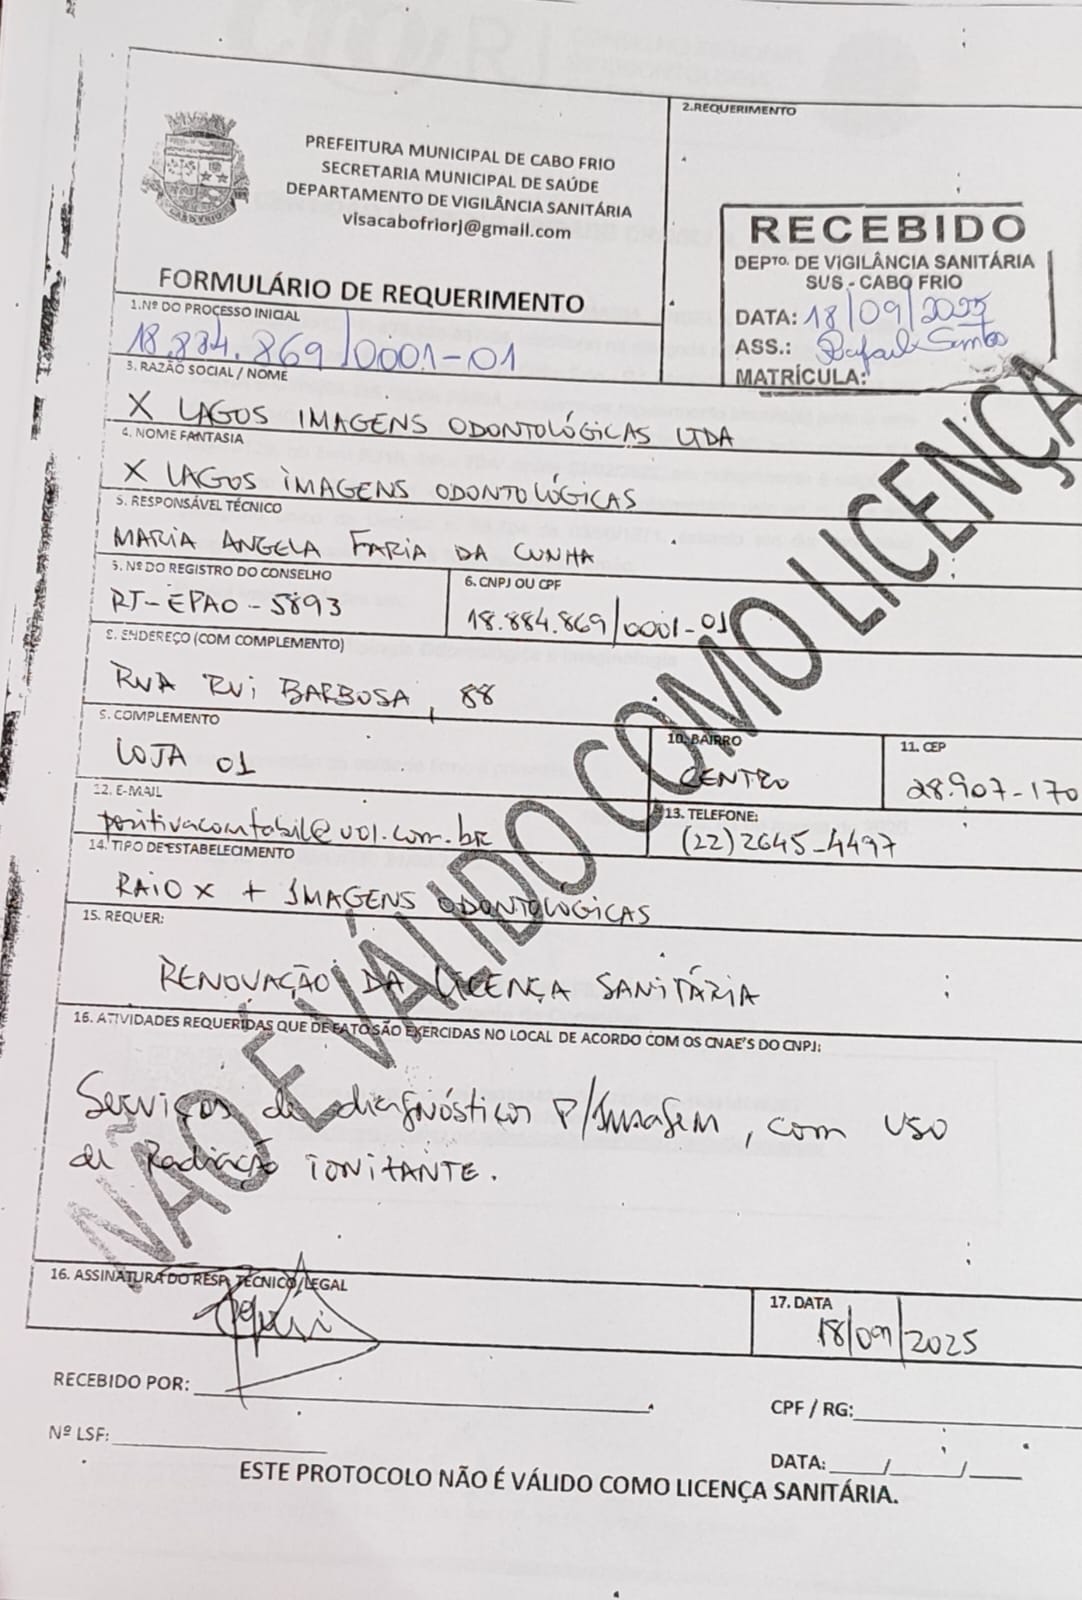 PREFEITURA MUNICIPAL DE CABO FRIO
SECRETARIA MUNICIPAL DE SAÚDE
DEPARTAMENTO DE VIGILÂNCIA SANITÁRIA
visacabofriorj@gmail.com
FORMULÁRIO DE REQUERIMENTO
2.REQUERIMENTO
RECEBIDO
DEPTO. DE VIGILÂNCIA SANITÁRIA
SUS - CABO FRIO
DATA: 18/09/2025
ASS.: Rafael Santos
MATRÍCULA:
1.Nº DO PROCESSO INICIAL
18.884.869/0001-01
3. RAZÃO SOCIAL / NOME
X LAGOS IMAGENS ODONTOLÓGICAS LTDA
4. NOME FANTASIA
X LAGOS IMAGENS ODONTOLÓGICAS
5. RESPONSÁVEL TÉCNICO
MARIA ANGELA FARIA DA CUNHA
5. Nº DO REGISTRO DO CONSELHO
RJ-EPAO-5893
6. CNPJ OU CPF
18.884.869/0001-01
8. ENDEREÇO (COM COMPLEMENTO)
RUA RUI BARBOSA, 88
9. COMPLEMENTO
LOJA 01
10. BAIRRO
CENTRO
11. CEP
28.907-170
12. E-MAIL
positivacontabil@uol.com.br
13. TELEFONE:
(22)2645-4497
14. TIPO DE ESTABELECIMENTO
RAIO X + IMAGENS ODONTOLOGICAS
15. REQUER:
RENOVAÇÃO DA LICENÇA SANITÁRIA
16. ATIVIDADES REQUERIDAS QUE DE FATO SÃO EXERCIDAS NO LOCAL DE ACORDO COM OS CNAE'S DO CNPJ:
Serviços de diagnósticos P/Imagem, com uso
de Radiação IONIZANTE.
NÃO E VÁLIDO COMO LICENÇA
16. ASSINATURA DO RESP. TÉCNICO/LEGAL
17. DATA
18/09/2025
RECEBIDO POR:
CPF / RG:
Nº LSF:
DATA: __/__/__
ESTE PROTOCOLO NÃO É VÁLIDO COMO LICENÇA SANITÁRIA.